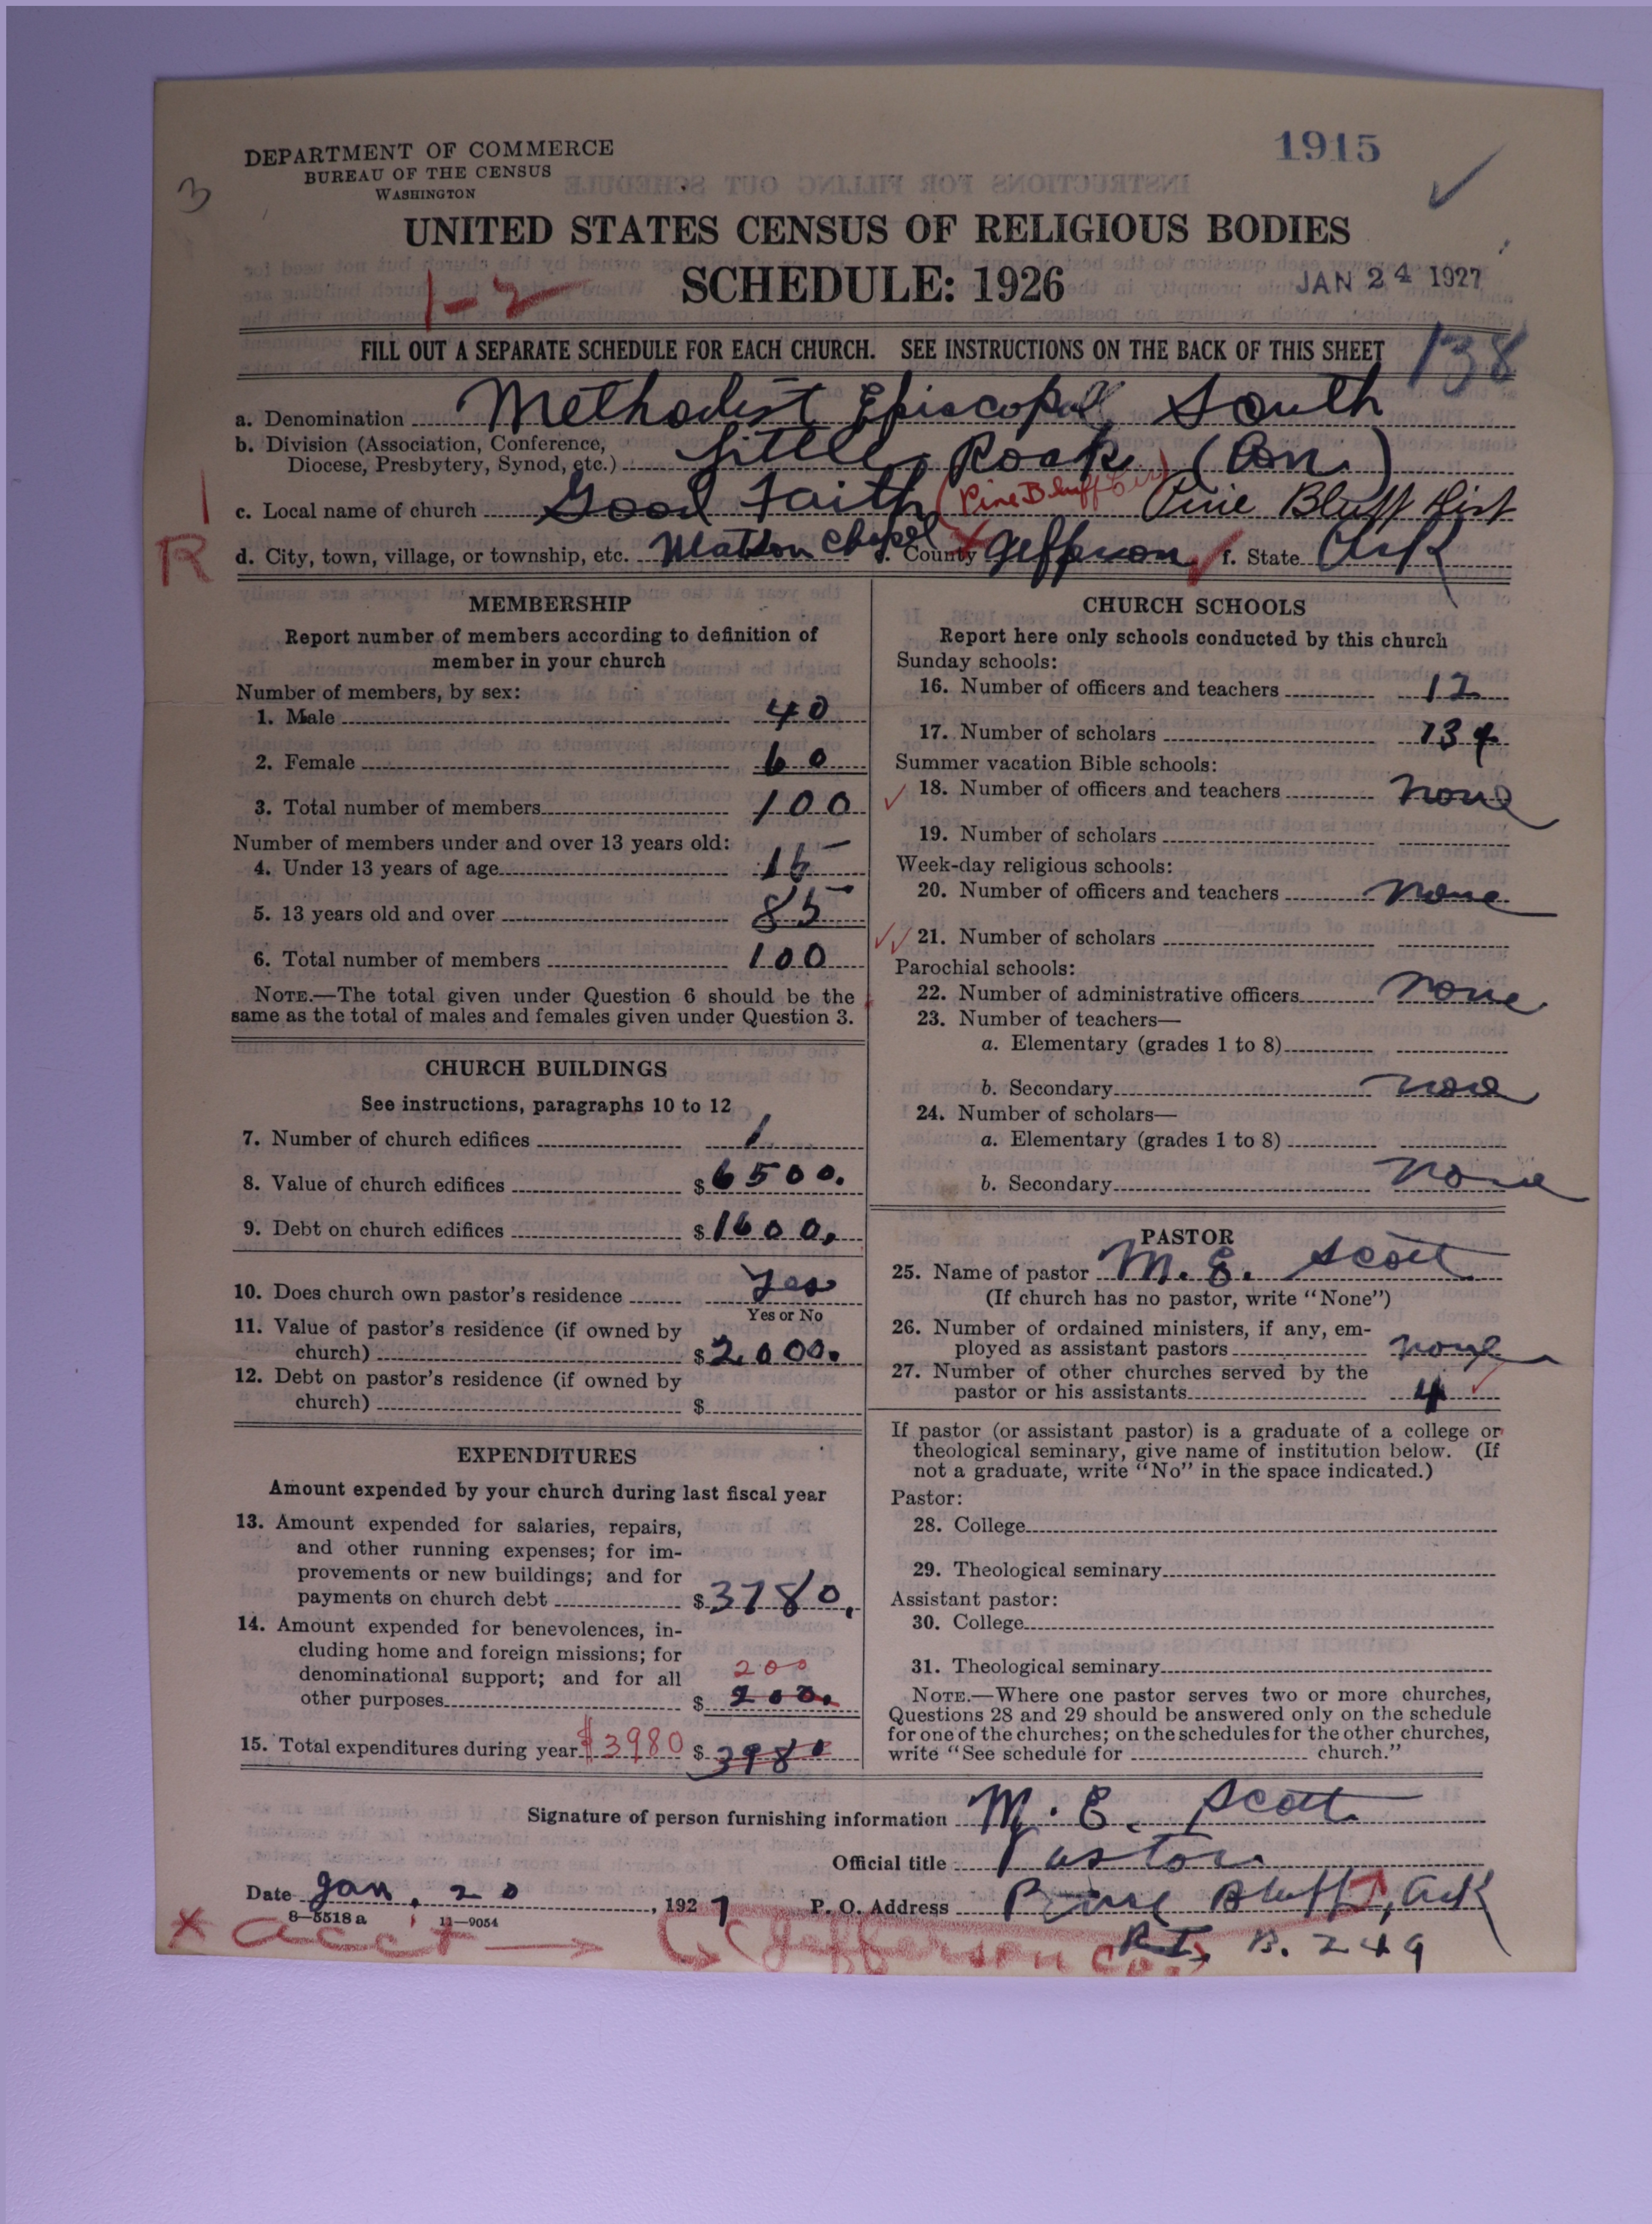 1915
DEPARTMENT OF COMMERCE
BUREAU OF THE CENSUS
WASHINGTON
3
UNITED STATES CENSUS OF RELIGIOUS BODIES
1-2
SCHEDULE: 1926
JAN 24 1927
FILL OUT A SEPARATE SCHEDULE FOR EACH CHURCH. SEE INSTRUCTIONS ON THE BACK OF THIS SHEET
138
a. Denomination Methodist Episcopal, South
b. Division (Association, Conference,
Diocese, Presbytery, Synod, etc.) Little Rock (Con.)
c. Local name of church Good Faith (Pine Bluff Cir) Pine Bluff Dist
R d. City, town, village, or township, etc. Watson Chapel e. County Jefferson f. State Ark
MEMBERSHIP
Report number of members according to definition of
member in your church
Number of members, by sex:
1. Male 40
2. Female 60
3. Total number of members 100
Number of members under and over 13 years old:
4. Under 13 years of age 15
5. 13 years old and over 85
6. Total number of members 100
NOTE.—The total given under Question 6 should be the
same as the total of males and females given under Question 3.
CHURCH BUILDINGS
See instructions, paragraphs 10 to 12
7. Number of church edifices 1
8. Value of church edifices $6500.
9. Debt on church edifices $1600.
10. Does church own pastor's residence Yes
Yes or No
11. Value of pastor's residence (if owned by
church) $2,000.
12. Debt on pastor's residence (if owned by
church) $
EXPENDITURES
Amount expended by your church during last fiscal year
13. Amount expended for salaries, repairs,
and other running expenses; for im-
provements or new buildings; and for
payments on church debt $3780.
14. Amount expended for benevolences, in-
cluding home and foreign missions; for
denominational support; and for all 200
other purposes $ 200.
15. Total expenditures during year $3980 $3980
CHURCH SCHOOLS
Report here only schools conducted by this church
Sunday schools:
16. Number of officers and teachers 12
17. Number of scholars 134
Summer vacation Bible schools:
18. Number of officers and teachers none
19. Number of scholars
Week-day religious schools:
20. Number of officers and teachers none
21. Number of scholars
Parochial schools:
22. Number of administrative officers none
23. Number of teachers—
a. Elementary (grades 1 to 8)
b. Secondary none
24. Number of scholars—
a. Elementary (grades 1 to 8)
b. Secondary none
PASTOR
25. Name of pastor M. E. Scott
(If church has no pastor, write "None")
26. Number of ordained ministers, if any, em-
ployed as assistant pastors none
27. Number of other churches served by the
pastor or his assistants 4
If pastor (or assistant pastor) is a graduate of a college or
theological seminary, give name of institution below. (If
not a graduate, write "No" in the space indicated.)
Pastor:
28. College
29. Theological seminary
Assistant pastor:
30. College
31. Theological seminary
NOTE.—Where one pastor serves two or more churches,
Questions 28 and 29 should be answered only on the schedule
for one of the churches; on the schedules for the other churches,
write "See schedule for church."
Signature of person furnishing information M. E. Scott
Official title Pastor
Date Jan. 20, 1927 P. O. Address Pine Bluff, Ark
8—5518 a 11—9054
x acct (Jefferson Co.) Rt. B. 249